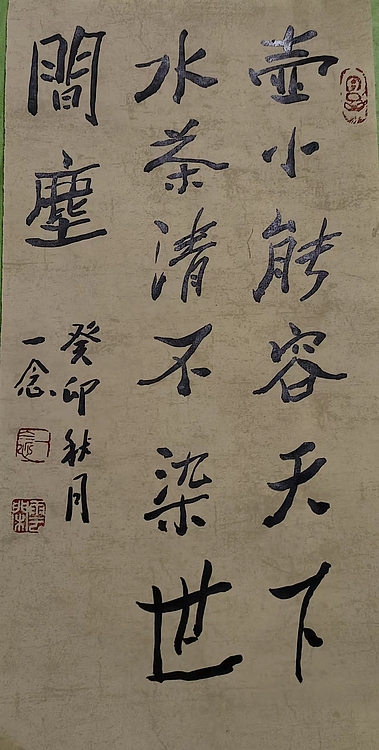 壺小能容天下
水茶清不染世
間塵
癸卯秋月
一念